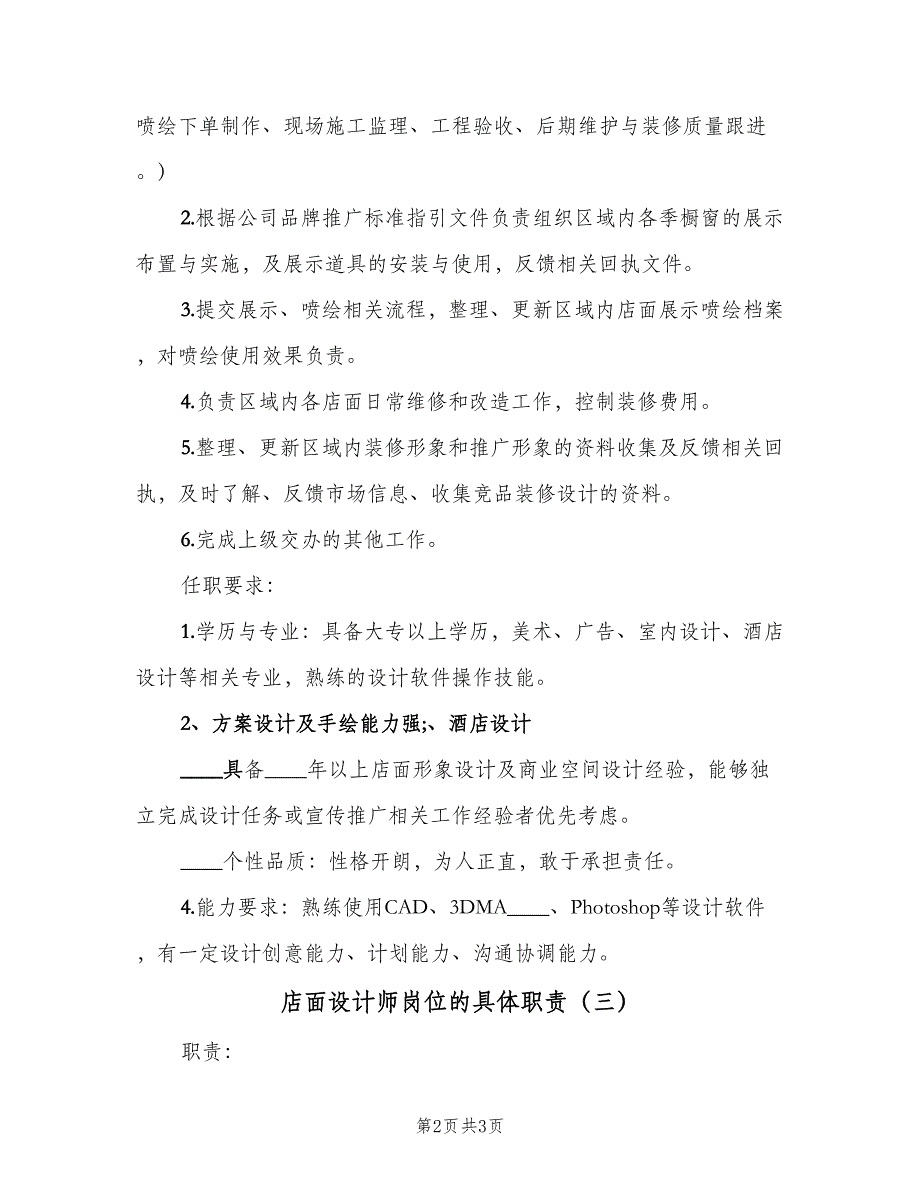 喷绘下单制作、现场施工监理、工程验收、后期维护与装修质量跟进
。)
2.根据公司品牌推广标准指引文件负责组织区域内各季橱窗的展示
布置与实施，及展示道具的安装与使用，反馈相关回执文件。
3.提交展示、喷绘相关流程，整理、更新区域内店面展示喷绘档案
，对喷绘使用效果负责。
4.负责区域内各店面日常维修和改造工作，控制装修费用。
5.整理、更新区域内装修形象和推广形象的资料收集及反馈相关回
执，及时了解、反馈市场信息、收集竞品装修设计的资料。
6.完成上级交办的其他工作。
任职要求：
1.学历与专业：具备大专以上学历，美术、广告、室内设计、酒店
设计等相关专业，熟练的设计软件操作技能。
2、方案设计及手绘能力强;、酒店设计
____具备____年以上店面形象设计及商业空间设计经验，能够独
立完成设计任务或宣传推广相关工作经验者优先考虑。
____个性品质：性格开朗，为人正直，敢于承担责任。
4.能力要求：熟练使用CAD、3DMA____、Photoshop等设计软件
，有一定设计创意能力、计划能力、沟通协调能力。
店面设计师岗位的具体职责（三）
职责：
第2页 共3页